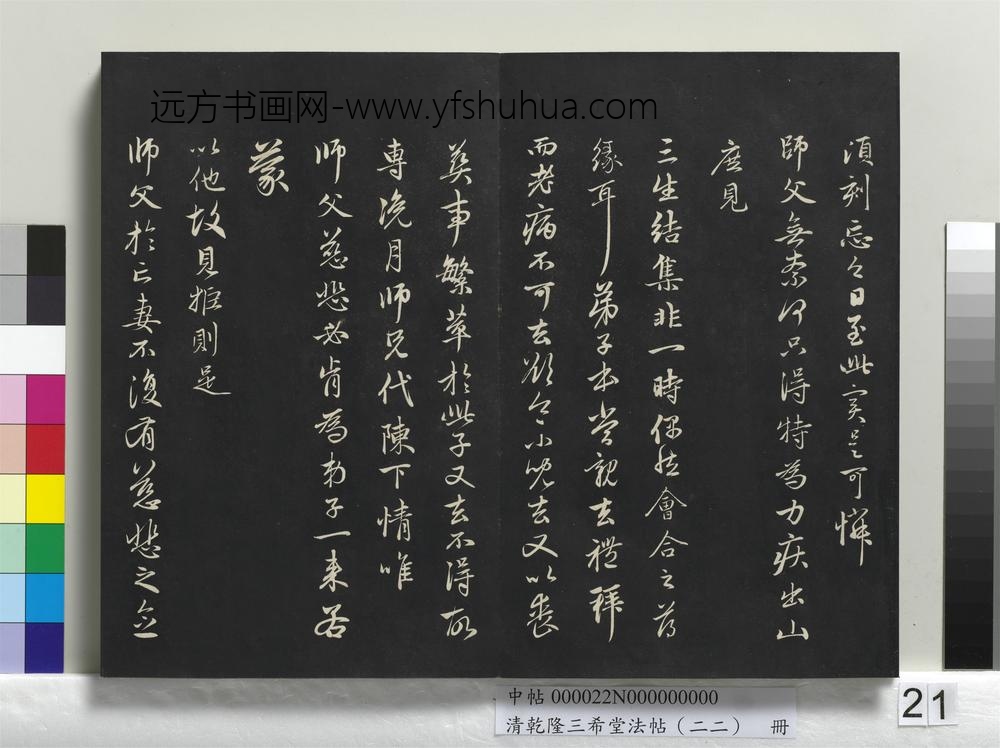 远方书画网-www.yfshuhua.com
須刻忘之日至此實是可憐
師父無奈何只得特為力疾出山
庶見
三生結集非一時偶然會合之薄
緣耳弟子本當親去禮拜
而老病不可去欲令小兒去又以喪
葬事繁萃於此子又去不得故
專浼月師兄代陳下情唯
师父慈悲必肯為弟子一來若
蒙
以他故見拒則是
师父於亡妻不復有慈悲之念
中帖 000022N000000000
清乾隆三希堂法帖(二二) 冊
21